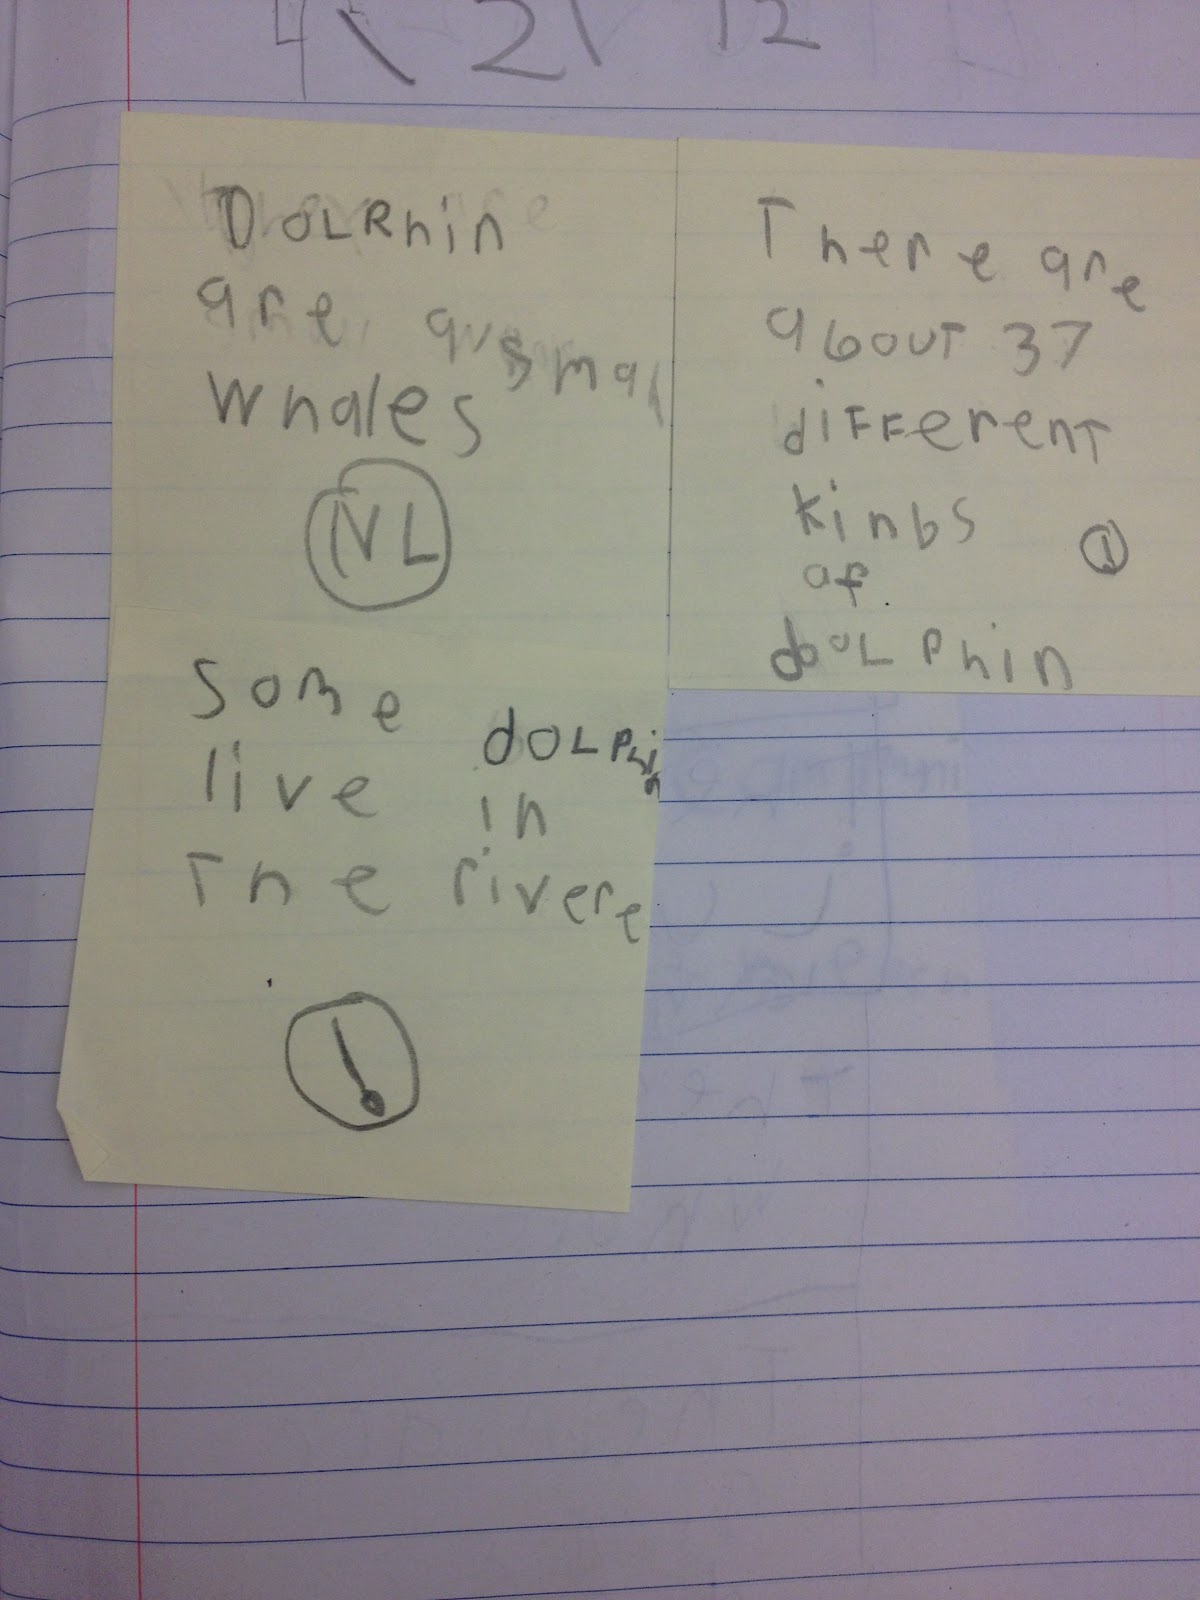 2 12
DOLPhin
are
small
whales
NL
There are
about 37
diFFerent
kinbs
of
doLPhin
!
some doLPhin
live in
The rivere
!